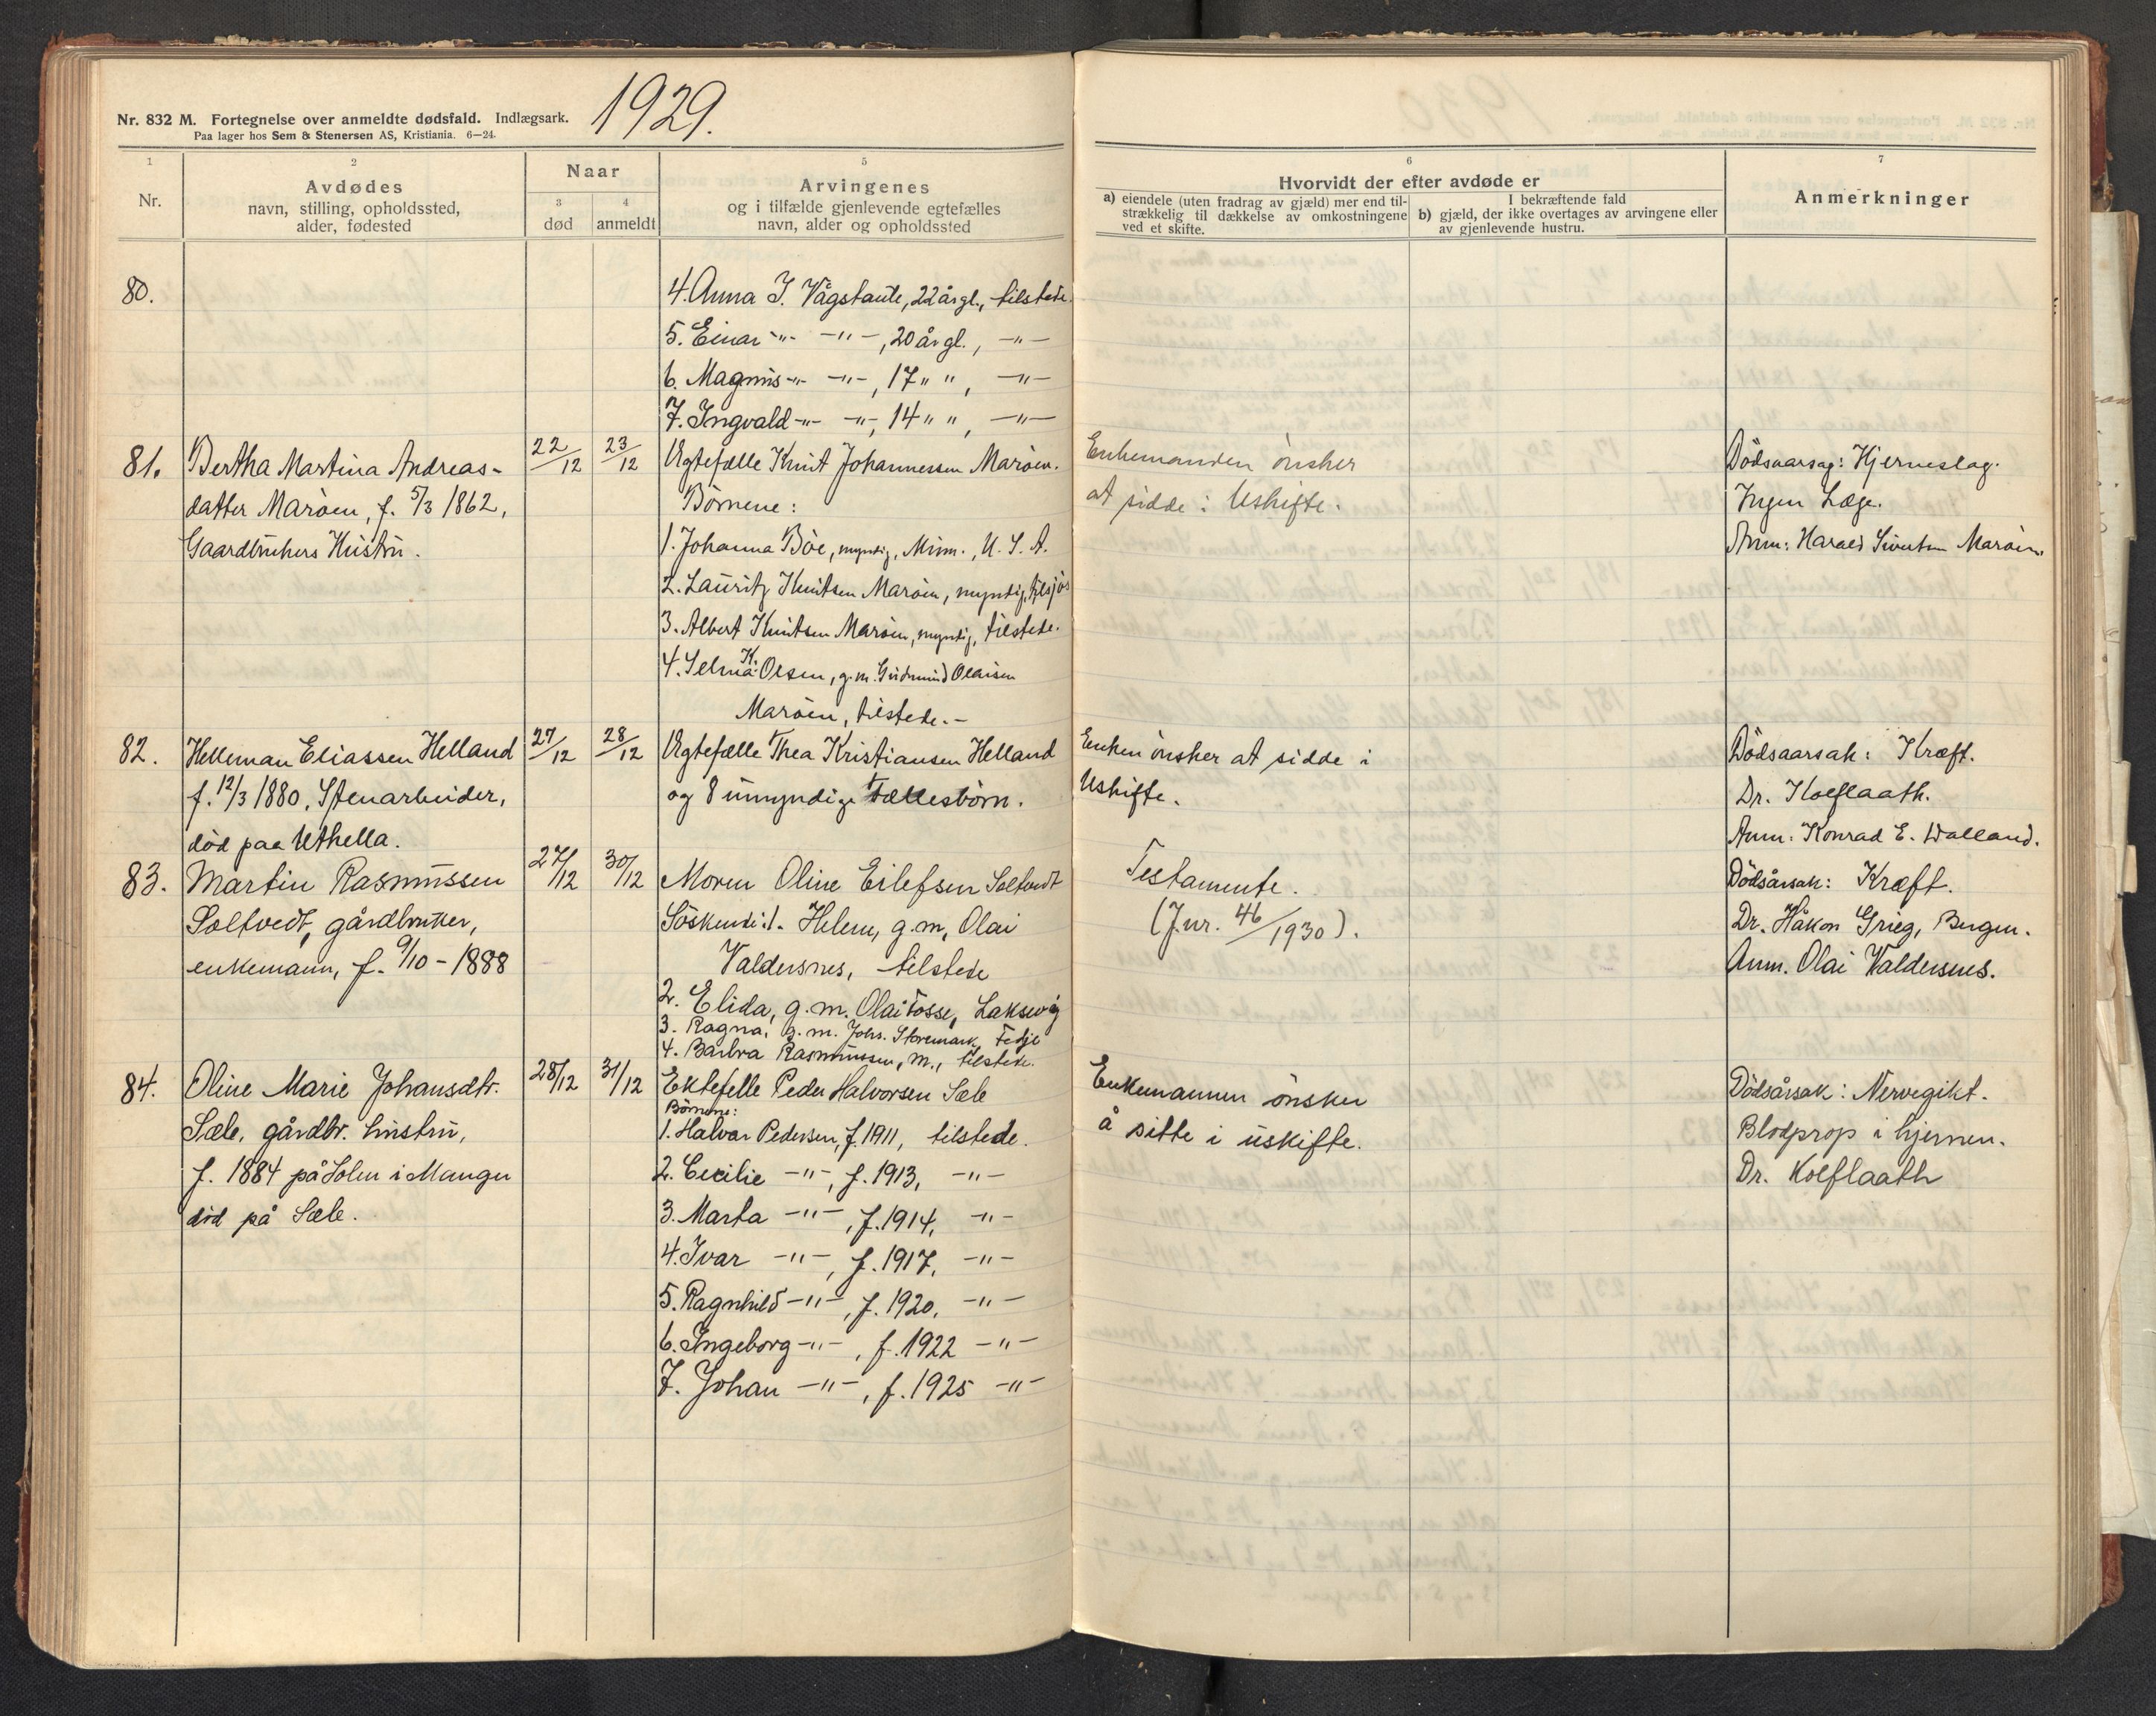 Nr. 832 M. Fortegnelse over anmeldte dødsfald. Indlægsark.
Paa lager hos Sem & Stenersen AS, Kristiania. 6—24.
1929.
1
Nr.
2
Avdødes
navn, stilling, opholdssted,
alder, fødested
Naar
3
død
4
anmeldt
5
Arvingenes
og i tilfælde gjenlevende egtefælles
navn, alder og opholdssted
6
Hvorvidt der efter avdøde er
a) eiendele (uten fradrag av gjæld) mer end til-
strækkelig til dækkelse av omkostningene
ved et skifte.
I bekræftende fald
b) gjæld, der ikke overtages av arvingene eller
av gjenlevende hustru.
7
Anmerkninger
80.
4. Anna J. Vågstaule, 22 år gl., tilstede.
5. Einar -"- -"-, 20 år gl., -"-
6. Magnus -"- -"-, 17 " ", -"-
7. Ingvald -"- -"-, 14 " ", -"-
81.
Bertha Martina Andreas-
datter Marøen, f. 5/3 1862,
Gaardbrukers Hustru.
22/12
23/12
Ægtefælle Knut Johannessen Marøen.
Börnene:
1. Johanna Böe, myndig, Minn., U. S. A.
2. Lauritz Knutsen Maröen, myndig, tilsjös
3. Albert Knutsen Maröen, myndig, tilstede.
4. Selma K. Olsen, g. m. Gudmund Olaisen
Maröen, tilstede.-
Enkemanden önsker
at sidde i Uskifte.
Dödsaarsag: Hjerneslag.
Ingen Læge.
Anm: Harald Sivertsen Maröen.
82.
Helleman Eliassen Helland
f. 12/3 1880, Stenarbeider,
död paa Uthella.
27/12
28/12
Ægtefælle Thea Kristiansen Helland
og 8 umyndige Fællesbörn.
Enken önsker at sidde i
Uskifte.
Dödsaarsak: Kræft.
Dr. Kolflaath.
Anm: Konrad E. Walland.
83.
Martin Rasmussen
Soltvedt, gårdbruker,
enkemann, f. 9/10 - 1888
27/12
30/12
Moren Oline Eilefsen Soltvedt
Söskende: 1. Helene, g. m. Olai
Valdersnes, tilstede
2. Elida, g. m. Olai Fosse, Laksevåg
3. Ragna, g. m. Johs. Storemark, Fedje
4. Barbra Rasmussen, m., tilstede.
Testamente.
(J.nr. 46/1930).
Dödsårsak: Kræft.
Dr. Håkon Grieg, Bergen.
Anm. Olai Valdersnes.
84.
Oline Marie Johansdtr.
Sæle, gårdbr. hustru,
f. 1884 på Solem i Manger
död på Sæle.
28/12
31/12
Ektefelle Peder Halvorsen Sæle
Börnene:
1. Halvar Pedersen, f. 1911, tilstede.
2. Cecilie -"-, f. 1913, -"-
3. Marta -"-, f. 1914, -"-
4. Ivar -"-, f. 1917, -"-
5. Ragnhild -"-, f. 1920, -"-
6. Ingeborg -"-, f. 1922 -"-
7. Johan -"-, f. 1925 -"-
Enkemannen önsker
å sitte i uskifte.
Dödsårsak: Nervegikt.
Blodprop i hjernen.
Dr. Kolflaath